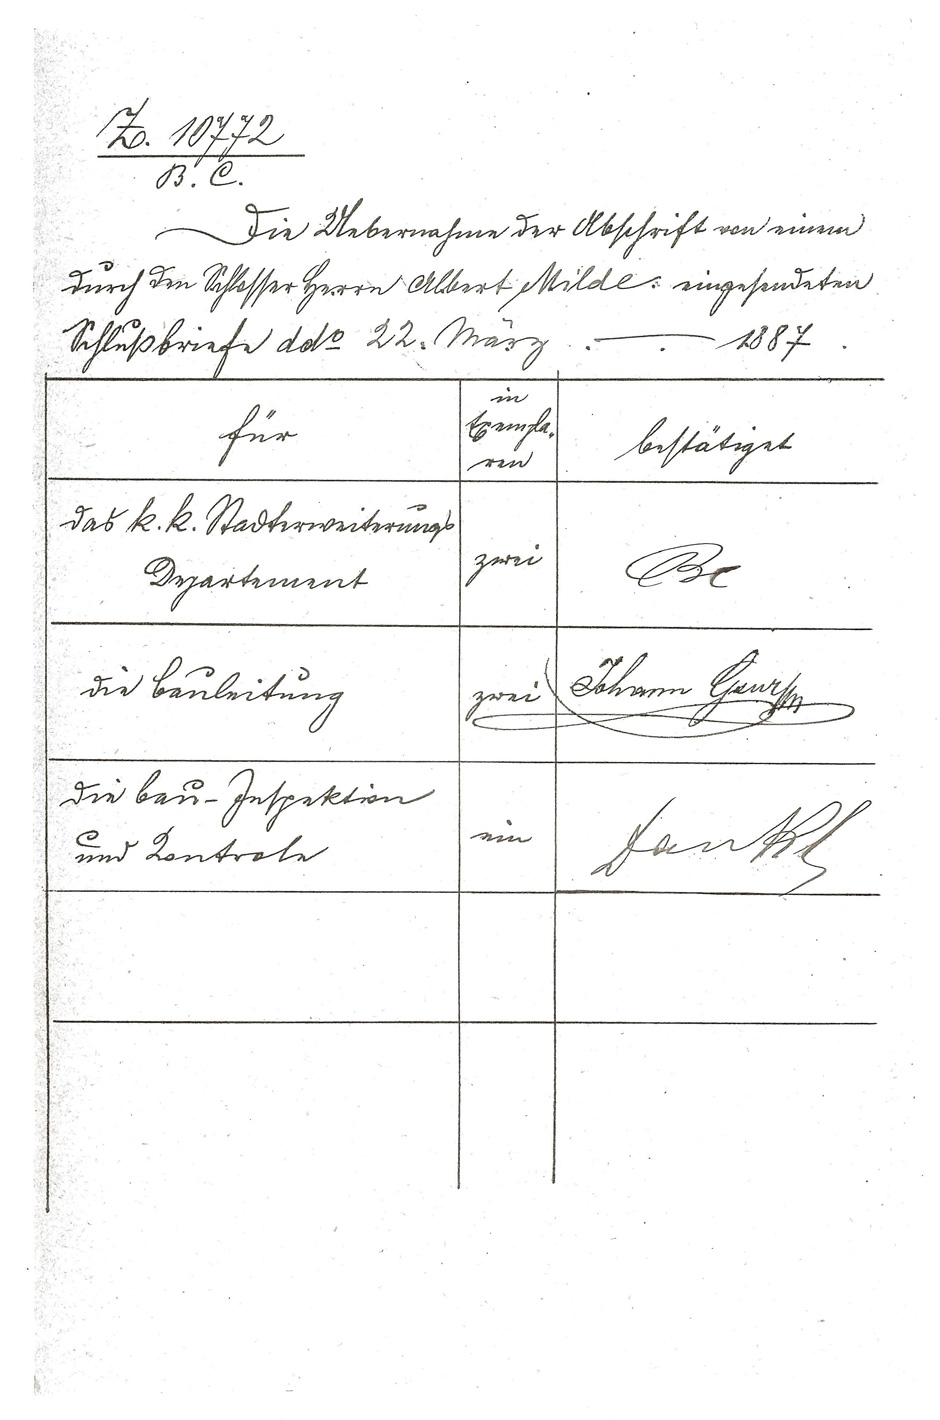 Z. 10772
B. C.
Die Uebernahme der Abschrift von einem
durch den Schlosser Herrn Albert Milde: eingesendeten
Schlußbriefe ddo 22. März . — . — 1887 .
für
in
Exempla-
ren
bestätiget
das k. k. Stadterweiterungs
Departement
zwei
die Bauleitung
zwei
Johann
die Bau-Inspektion
und Kontrole
ein